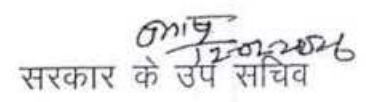 12.02.2026
सरकार के उप सचिव